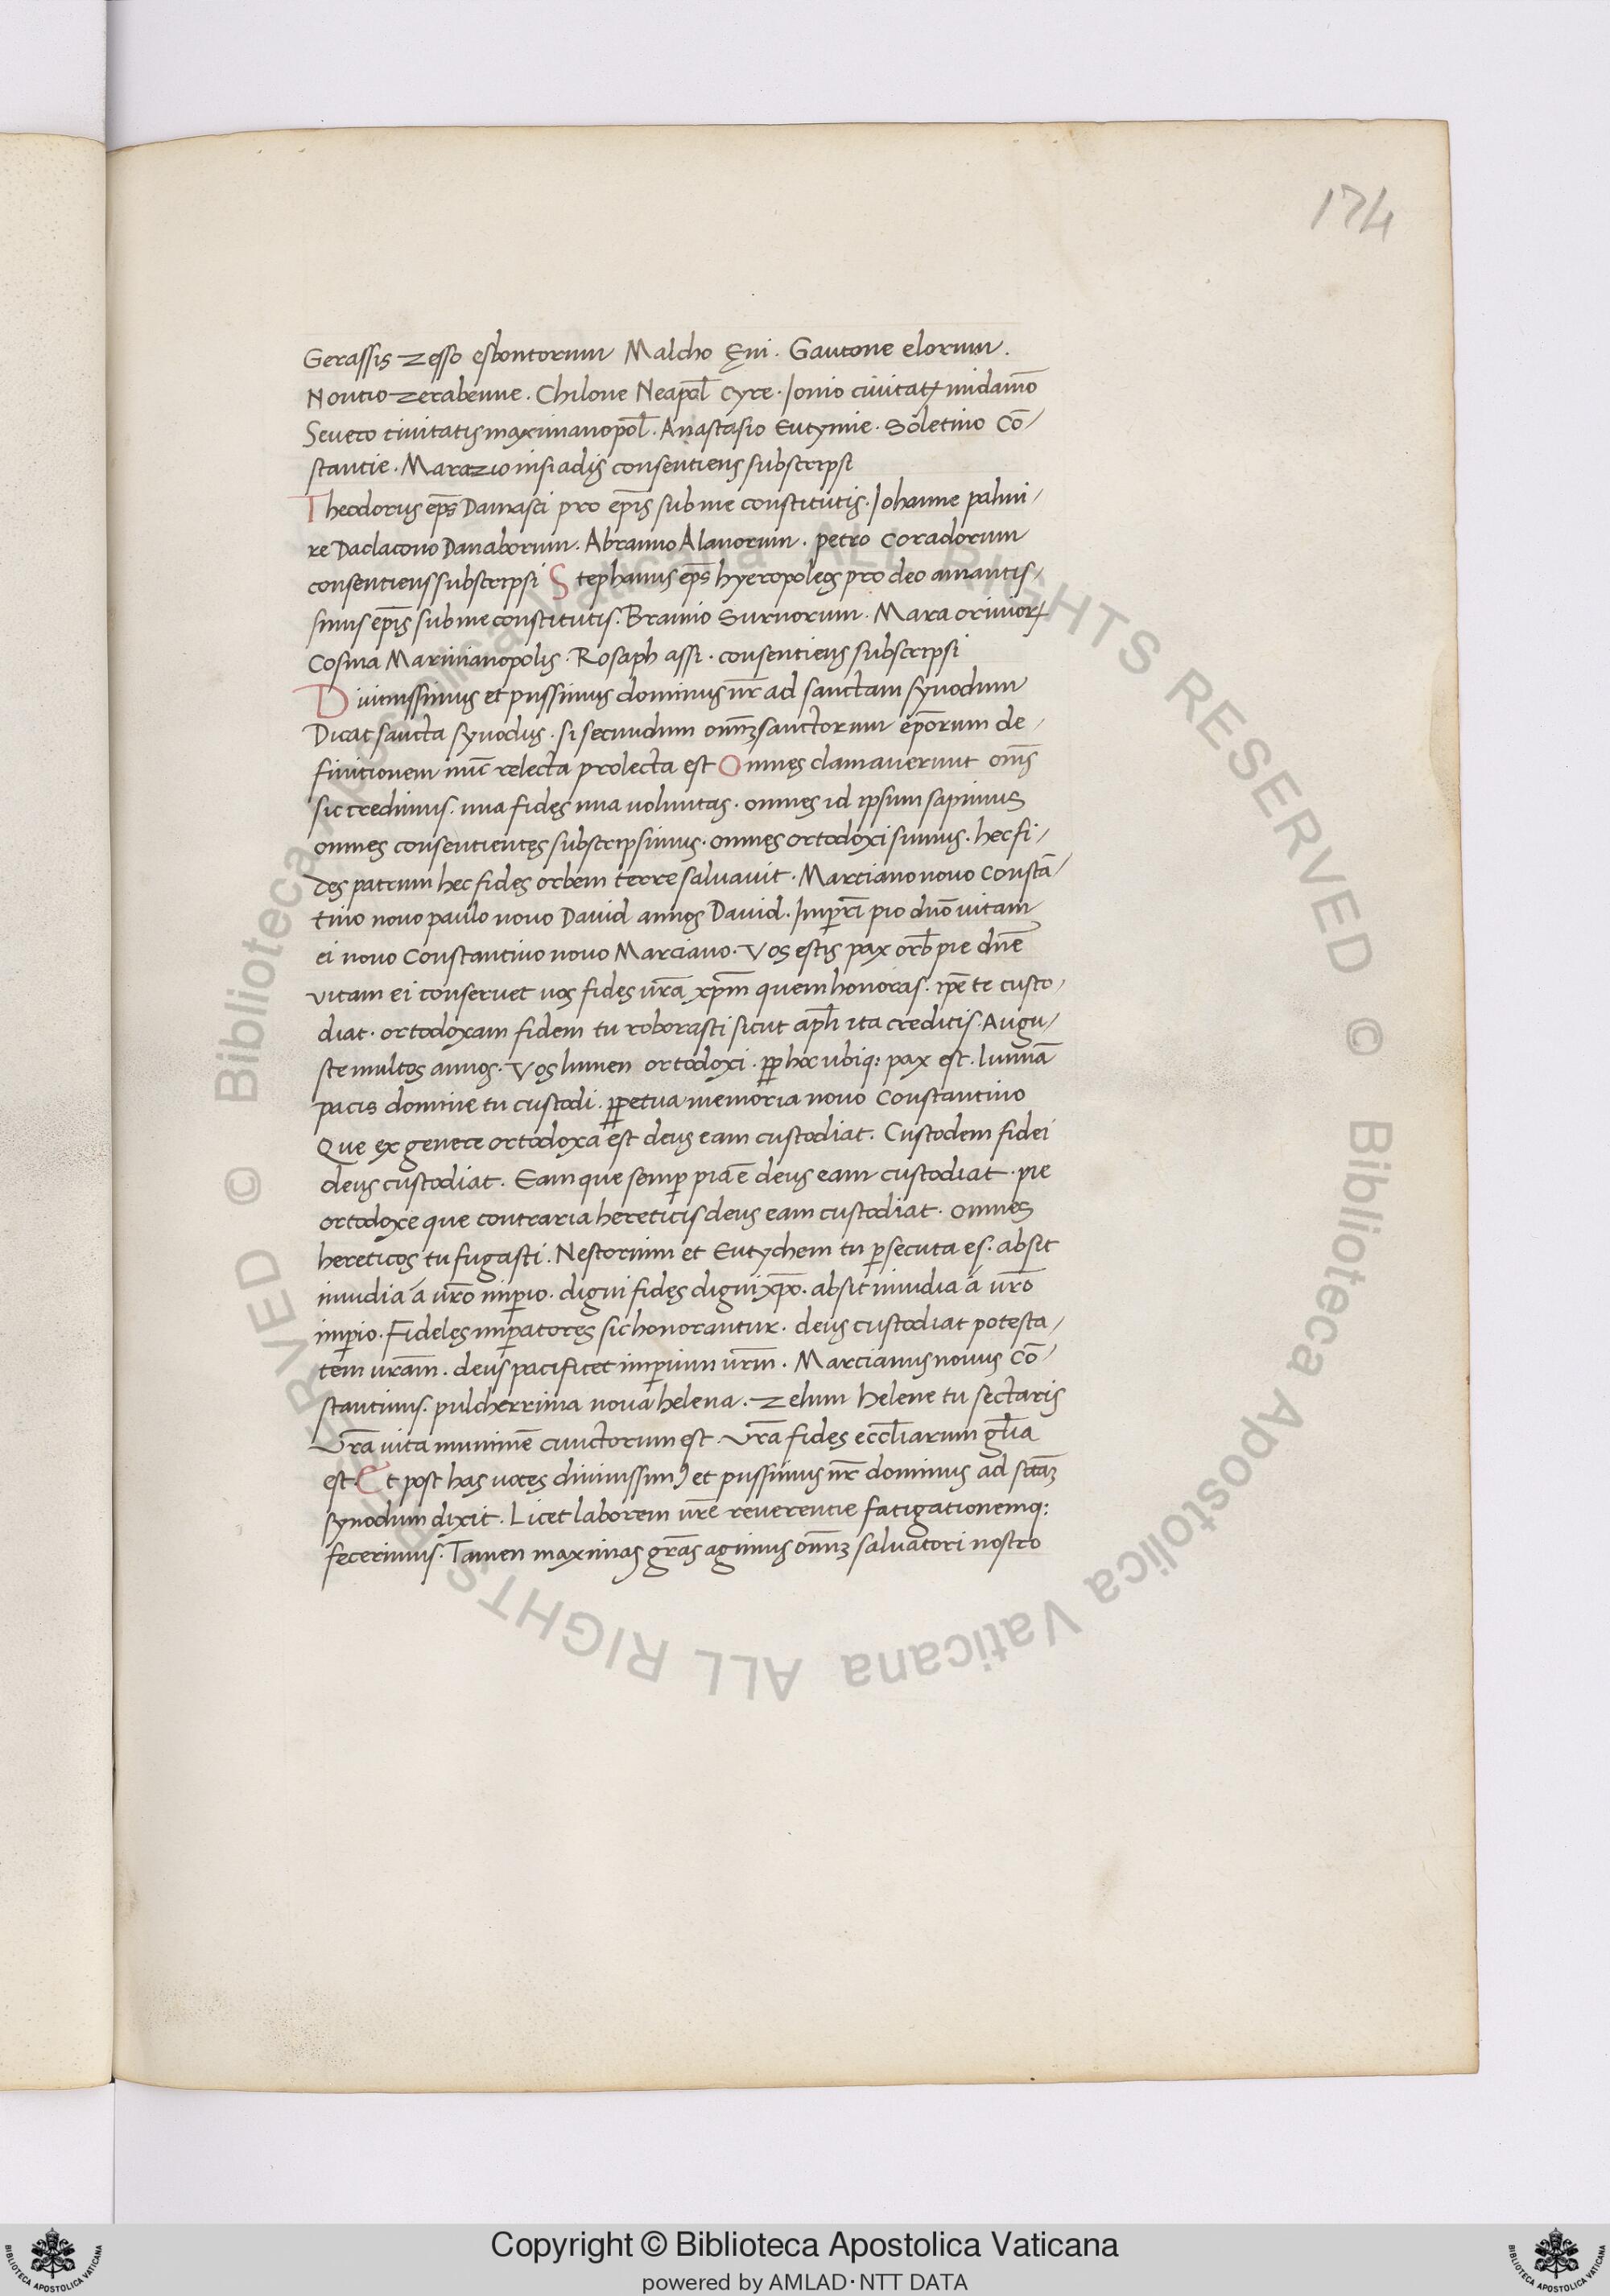 174
Gerassis zesso esbontorum Malcho Ęni. Gautone elorum.
Nontio zerabenne. Chilone Neapol̄ Cyre. Ionio ciuitatꝝ midam̄o
Severo ciuitatis maximanopol̄. Anastasio Eutymie. Soletino Cō/
stantie. Marazio insiadis consentiens subscripsi
Theodorus ep̄s Damasci pro ep̄is sub me constitutis. Iohanne palmi/
re Daclacono Danaborum. Abramo Alanorum. petro Coradorum
consentiens subscripsi Stephanus ep̄s hyeropoleos pro deo amantis/
simis ep̄is sub me constitutis. Bramio Surnorum. Mara oriniorꝝ
Cosma Marinianopolis. Rosaph assi. consentiens subscripsi
Diuinissimus et piissimus dominus nr̄ ad sanctam synodum
Dicat sancta synodus. si secundum omn̄ꝫ sanctorum ep̄orum de/
finitionem nūc relecta prolecta est Omnes clamaverunt om̄s
sic credimus. una fides una uoluntas. omnes id ipsum sapimus
omnes consentientes subscripsimus. omnes ortodoxi sumus. hec fi/
des patrum hec fides orbem terre salvavit. Marciano novo Constā/
tino novo paulo novo David annos David. Imper̄i pio dn̄o vitam
ei novo Constantino novo Marciano. Vos estis pax orb̄ pie dn̄e
vitam ei conservet vos fides vr̄a xp̄m̄ quem honoras. ip̄e te custo/
diat. ortodoxam fidem tu roborasti sicut ap̄li ita creditis. Augu/
ste multos annos. Vos lumen ortodoxi. ꝓp hoc ubiq: pax est. luminā
pacis domine tu custodi. ꝑpetua memoria novo Constantino
Que ex genere ortodoxa est deus eam custodiat. Custodem fidei
deus custodiat. Eam que semꝑ pia ē deus eam custodiat. pie
ortodoxe que contraria hereticis deus eam custodiat. omnes
hereticos tu fugasti. Nestorium et Eutychem tu ꝑsecuta es. absit
inuidia á vr̄o imꝑio. digni fides digni xp̄o. absit inuidia á vr̄o
imꝑio. Fideles imꝑatores sic honorantur. deus custodiat potesta/
tem vr̄am. deus pacificet imꝑium vr̄m. Marcianus novus Cō/
stantinus. pulcherrima nova helena. zelum helene tu sectaris
Vr̄a vita munimē cunctorum est. Vr̄a fides eccl̄iarum gl̄ia
est Et post has voces diuinissimꝰ et piissimus nr̄ dominus ad sc̄tāꝫ
synodum dixit. Licet laborem vr̄e reverentie fatigationemq:
fecerimus. Tamen maximas gr̄as agimus omn̄ꝫ salvatori nostro
© Biblioteca Apostolica Vaticana ALL RIGHTS RESERVED © Biblioteca Apostolica Vaticana ALL RIGHTS RESERVED
Copyright © Biblioteca Apostolica Vaticana
powered by AMLAD·NTT DATA
BIBLIOTECA APOSTOLICA VATICANA
BIBLIOTECA APOSTOLICA VATICANA